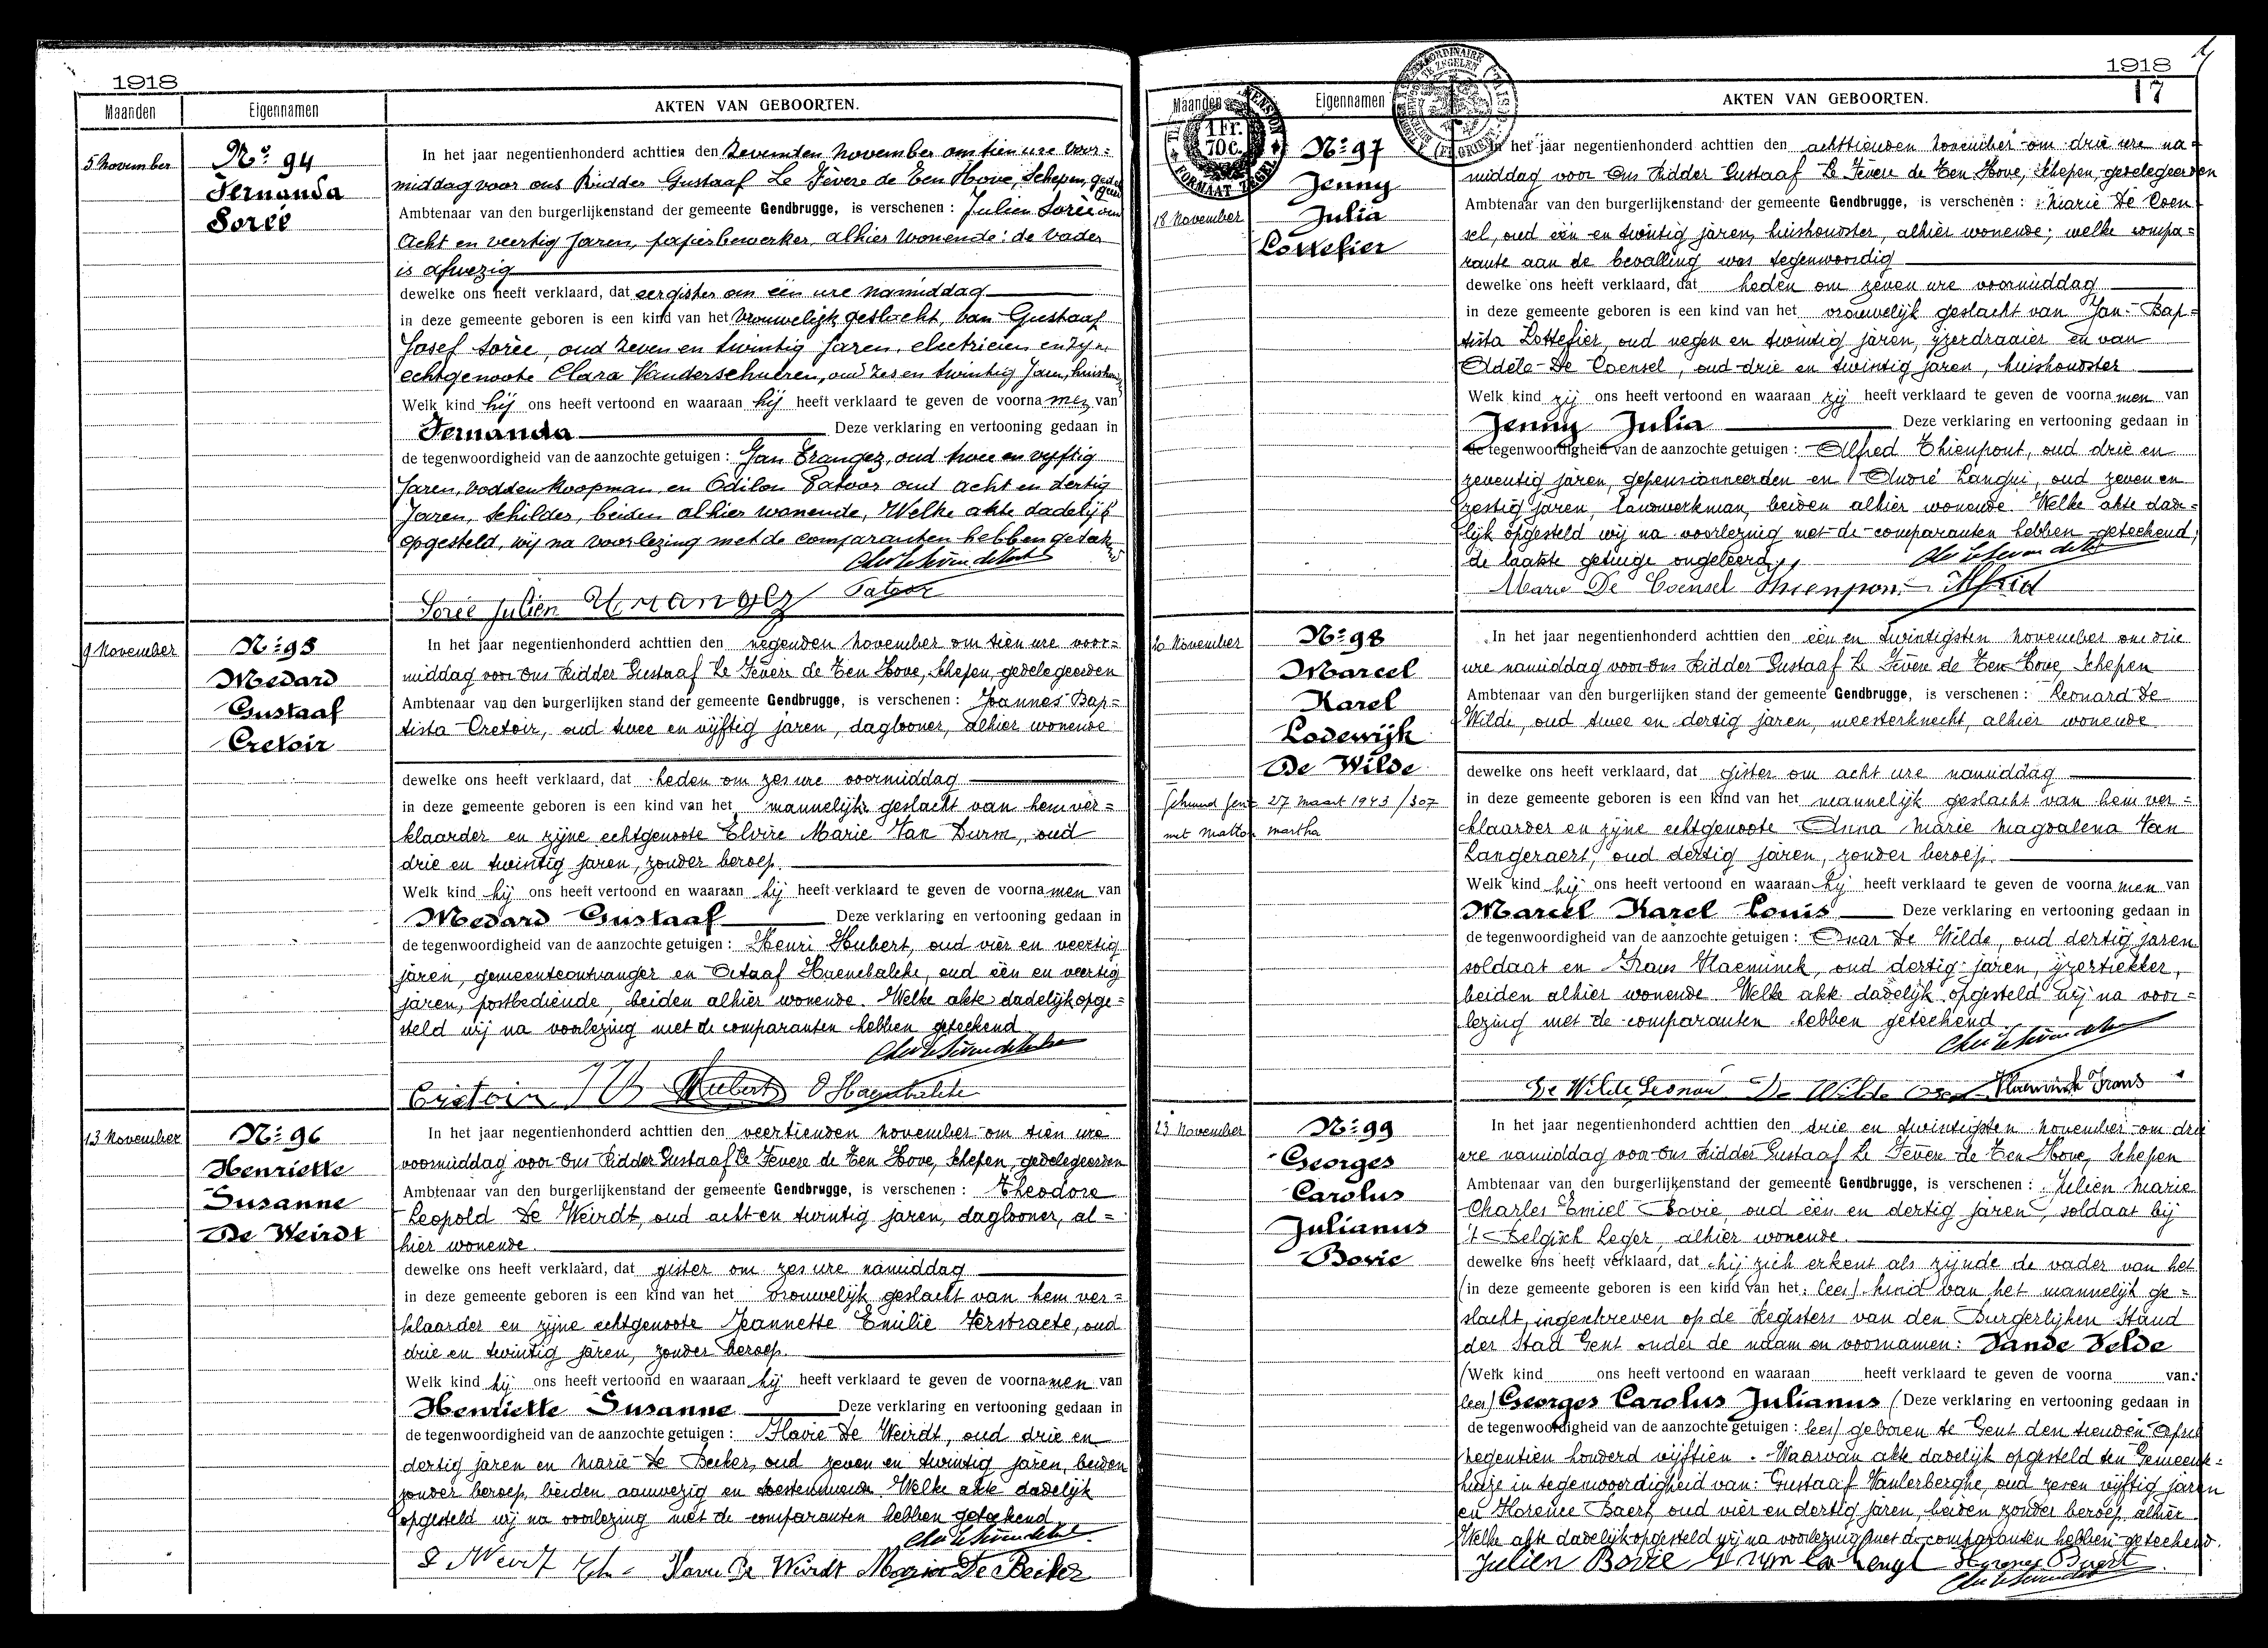 1918
Maanden Eigennamen AKTEN VAN GEBOORTEN.
5 November
Nº 94
Fernanda
Sorée
In het jaar negentienhonderd achttien den zevenden november om tien ure voor=
middag voor ons Ridder Gustaaf Le Fèvere de Ten Hove, Schepen, gedele
Ambtenaar van den burgerlijkenstand der gemeente Gendbrugge, is verschenen : Julien Sorée oud
acht en veertig Jaren, papierbewerker, alhier wonende: de vader
is afwezig
dewelke ons heeft verklaard, dat eergister om één ure namiddag
in deze gemeente geboren is een kind van het vrouwelijk geslacht, van Gustaaf
Josef Sorée, oud zeven en twintig Jaren, electricien en zijn
echtgenoote Clara Vanderschueren, oud zes en twintig Jaren,
Welk kind hij ons heeft vertoond en waaraan hij heeft verklaard te geven de voornamen van
Fernanda Deze verklaring en vertooning gedaan in
de tegenwoordigheid van de aanzochte getuigen : Jan Trangez, oud twee en vijftig
Jaren, voddenkoopman en Odilon Patoor oud acht en dertig
Jaren, Schilder, beiden alhier wonende, Welke akte dadelijk
opgesteld, wij na voorlezing met de comparanten hebben
Sorée Julien Patoor
9 November
Nº 95
Medard
Gustaaf
Cretoir
In het jaar negentienhonderd achttien den negenden november om tien ure voor=
middag voor Ons Ridder Gustaaf Le Fèvere de Ten Hove, Schepen, gedelegeerden
Ambtenaar van den burgerlijken stand der gemeente Gendbrugge, is verschenen : Joannes Bap=
tista Cretoir, oud twee en vijftig jaren, daglooner, alhier wonende
dewelke ons heeft verklaard, dat heden om zes ure voormiddag
in deze gemeente geboren is een kind van het mannelijk geslacht van hem ver=
klaarder en zijne echtgenoote Elvire Marie Van Durm, oud
drie en twintig jaren, zonder beroep.
Welk kind hij ons heeft vertoond en waaraan hij heeft verklaard te geven de voornamen van
Medard Gustaaf Deze verklaring en vertooning gedaan in
de tegenwoordigheid van de aanzochte getuigen : Henri Hubert, oud vier en veertig
jaren, gemeenteontvanger en Octaaf Haenebalcke, oud één en veertig
jaren, postbediende, beiden alhier wonende. Welke akte dadelijk opge=
steld wij na voorlezing met de comparanten hebben geteekend
Cretoir J B Hubert O Haenebalcke
13 November
Nº 96
Henriette
Susanne
De Weirdt
In het jaar negentienhonderd achttien den veertienden november om tien ure
voormiddag voor Ons Ridder Gustaaf Le Fèvere de Ten Hove, Schepen, gedelegeerden
Ambtenaar van den burgerlijkenstand der gemeente Gendbrugge, is verschenen : Theodore
Leopold De Weirdt, oud acht en twintig jaren, daglooner, al=
hier wonende.
dewelke ons heeft verklaard, dat gister om zes ure namiddag
in deze gemeente geboren is een kind van het vrouwelijk geslacht van hem ver=
klaarder en zijne echtgenoote Jeannette Emilie Verstraete, oud
drie en twintig jaren, zonder beroep.
Welk kind hij ons heeft vertoond en waaraan hij heeft verklaard te geven de voornamen van
Henriette Susanne Deze verklaring en vertooning gedaan in
de tegenwoordigheid van de aanzochte getuigen : Flavie De Weirdt, oud drie en
dertig jaren en Marie De Becker, oud zeven en twintig jaren, beiden
zonder beroep, beiden aanwezig en toestemmende. Welke akte dadelijk
opgesteld wij na voorlezing met de comparanten hebben geteekend
De Weirdt Maria De Becker
1918
17
Maanden Eigennamen AKTEN VAN GEBOORTEN.
1 Fr.
70 c.
FORMAAT ZEGEL
18 November
Nº 97
Jenny
Julia
Lottefier
In het jaar negentienhonderd achttien den achttienden november om drie ure na=
middag voor Ons Ridder Gustaaf Le Fèvere de Ten Hove, Schepen, gedelegeerden
Ambtenaar van den burgerlijkenstand der gemeente Gendbrugge, is verschenen : Marie De Coen
sel, oud één en twintig jaren, huishoudster, alhier wonende; welke compa=
rante aan de bevalling was tegenwoordig
dewelke ons heeft verklaard, dat heden om zeven ure voormiddag
in deze gemeente geboren is een kind van het vrouwelijk geslacht van Jan-Bap=
tista Lottefier, oud negen en twintig jaren, ijzerdraaier en van
Adèle De Coensel, oud drie en twintig jaren, huishoudster
Welk kind zij ons heeft vertoond en waaraan zij heeft verklaard te geven de voornamen van
Jenny Julia Deze verklaring en vertooning gedaan in
de tegenwoordigheid van de aanzochte getuigen : Alfred Thienpont, oud drie en
zeventig jaren, gepensionneerden en André Langui, oud zeven en
zestig jaren, landwerkman, beiden alhier wonende. Welke akte dade=
lijk opgesteld wij na voorlezing met de comparanten hebben geteekend,
de laatste getuige ongeleerd
Marie De Coensel Thienpont Alfried
20 November
Nº 98
Marcel
Karel
Lodewijk
De Wilde
Gehuwd Gent 27 Maart 1943 / 307
met Matton Martha
In het jaar negentienhonderd achttien den één en twintigsten november om drie
ure namiddag voor Ons Ridder Gustaaf Le Fèvere de Ten Hove, Schepen
Ambtenaar van den burgerlijken stand der gemeente Gendbrugge, is verschenen : Leonard De
Wilde, oud twee en dertig jaren, meesterknecht, alhier wonende
dewelke ons heeft verklaard, dat gister om acht ure namiddag
in deze gemeente geboren is een kind van het mannelijk geslacht van hem ver=
klaarder en zijne echtgenoote Anna Marie Magdalena Van
Langeraert, oud dertig jaren, zonder beroep.
Welk kind hij ons heeft vertoond en waaraan hij heeft verklaard te geven de voornamen van
Marcel Karel Louis Deze verklaring en vertooning gedaan in
de tegenwoordigheid van de aanzochte getuigen : Omar De Wilde, oud dertig jaren
soldaat en Frans Vlaeminck, oud dertig jaren, ijzertrekker,
beiden alhier wonende. Welke akte dadelijk opgesteld wij na voor=
lezing met de comparanten hebben geteekend
De Wilde Leonard De Wilde Vlaeminck Frans
23 November
Nº 99
Georges
Carolus
Julianus
Bovie
In het jaar negentienhonderd achttien den drie en twintigsten november om drie
ure namiddag voor Ons Ridder Gustaaf Le Fèvere de Ten Hove, Schepen
Ambtenaar van den burgerlijkenstand der gemeente Gendbrugge, is verschenen : Julien Marie
Charles Emiel Bovie, oud één en dertig jaren, soldaat bij
't Belgisch Leger, alhier wonende.
dewelke ons heeft verklaard, dat hij zich erkent als zijnde de vader van het
(in deze gemeente geboren is een kind van het: lees) kind van het mannelijk ge=
slacht, ingeschreven op de Registers van den Burgerlijken Stand
der Stad Gent onder de naam en voornamen: Vande Velde
(Welk kind ons heeft vertoond en waaraan heeft verklaard te geven de voorna van:
lees) Georges Carolus Julianus (Deze verklaring en vertooning gedaan in
de tegenwoordigheid van de aanzochte getuigen : lees) geboren te Gent den tienden April
negentien honderd vijftien. Waarvan akte dadelijk opgesteld ten Gemeente=
huize in tegenwoordigheid van: Gustaaf Vanlerberghe, oud zeven vijftig jaren
en Florence Baert, oud vier en dertig jaren, beiden zonder beroep, alhier
Welke akte dadelijk opgesteld wij na voorlezing met de comparanten hebben geteekend.
Julien Bovie